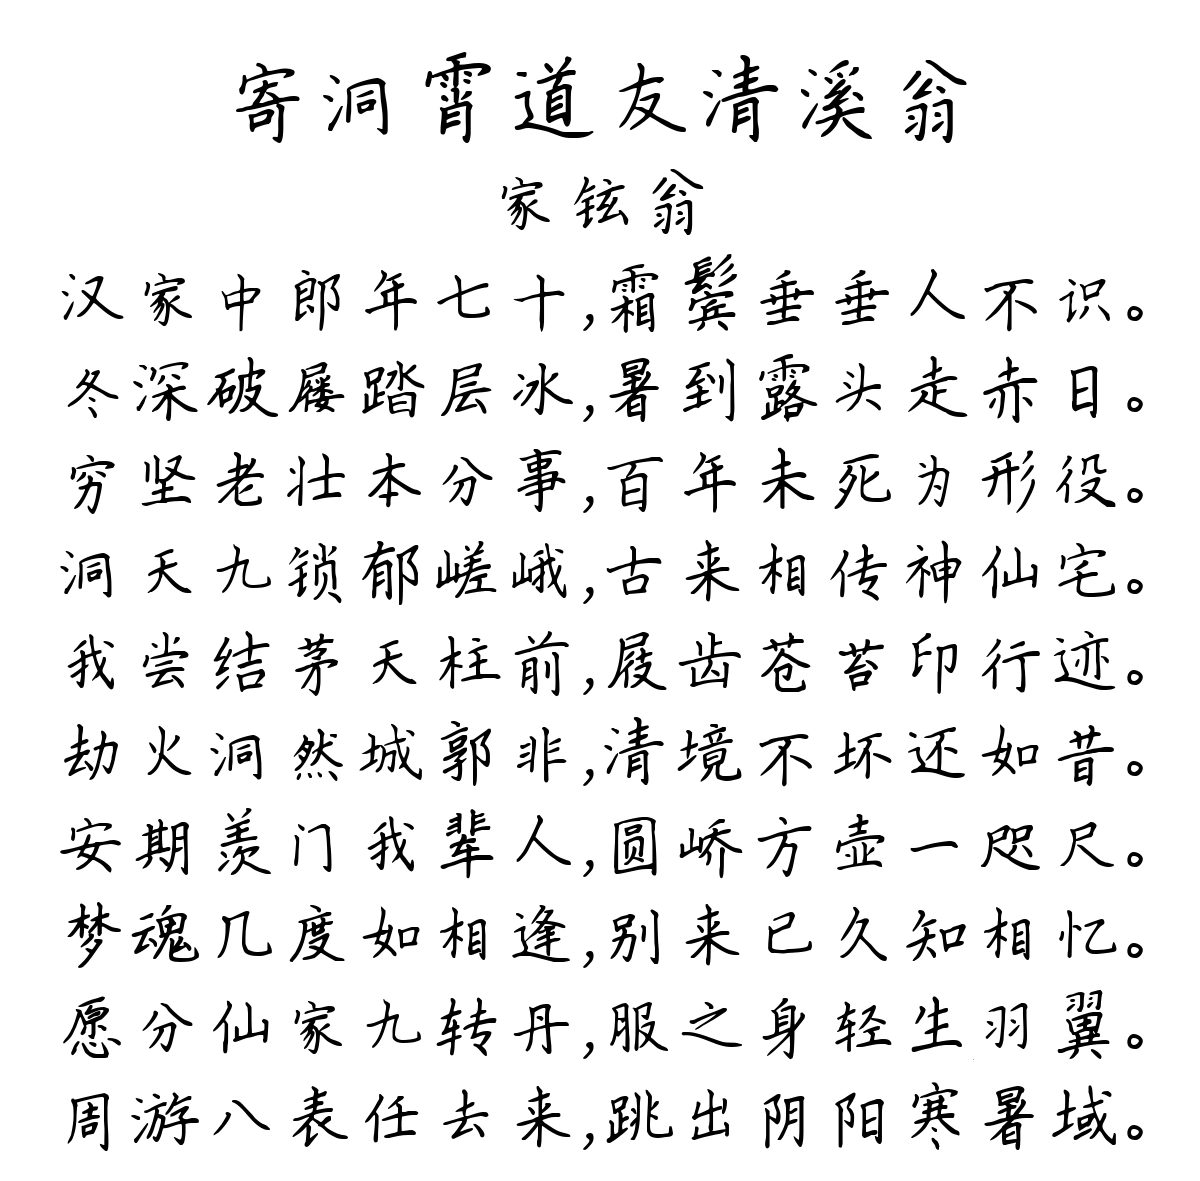 寄洞霄道友清溪翁
家铉翁
汉家中郎年七十,霜鬓垂垂人不识。
冬深破屦踏层冰,暑到露头走赤日。
穷坚老壮本分事,百年未死为形役。
洞天九锁郁嵯峨,古来相传神仙宅。
我尝结茅天柱前,屐齿苍苔印行迹。
劫火洞然城郭非,清境不坏还如昔。
安期羡门我辈人,圆峤方壶一咫尺。
梦魂几度如相逢,别来已久知相忆。
愿分仙家九转丹,服之身轻生羽翼。
周游八表任去来,跳出阴阳寒暑域。